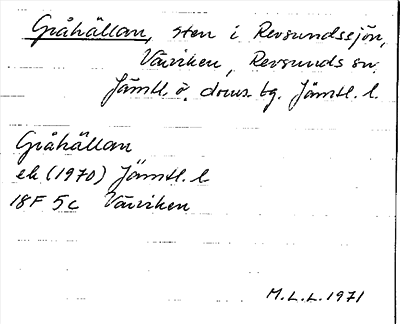 Gråhällan, sten i Revsundssjön,
Väviken, Revsunds sn.
Jämtl. ö. doms. bg. Jämtl. l.
Gråhällan
ek (1970) Jämtl. l
18F 5c Väviken
M.L.L. 1971